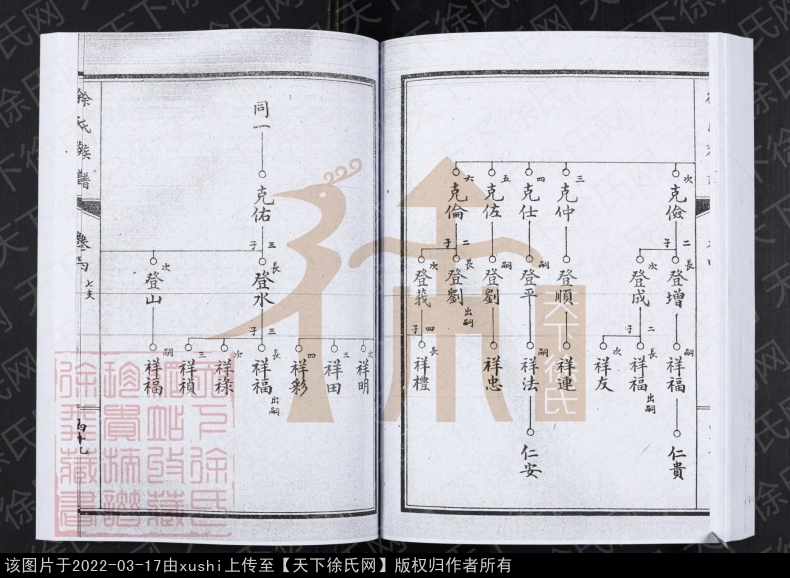 次 克儉
三 克仲
四 克仕
五 克佐
六 克倫
二子
長 登增
次 登成
登順
嗣 登平
嗣 登劉
二子
長 登劉 出嗣
次 登莪
嗣 祥福
二子
長 祥福 出嗣
次 祥友
祥連
嗣 祥法
祥忠
四子
長 祥禮
仁貴
仁安
次 祥明
三 祥田
四 祥彩
同一
克佑
三子
長 登水
次 登山
三子
長 祥福 出嗣
次 祥祿
三 祥禎
嗣 祥福
徐氏族譜
卷四
七支
天下徐氏
天下徐氏网
该图片于2022-03-17由xushi上传至【天下徐氏网】版权归作者所有